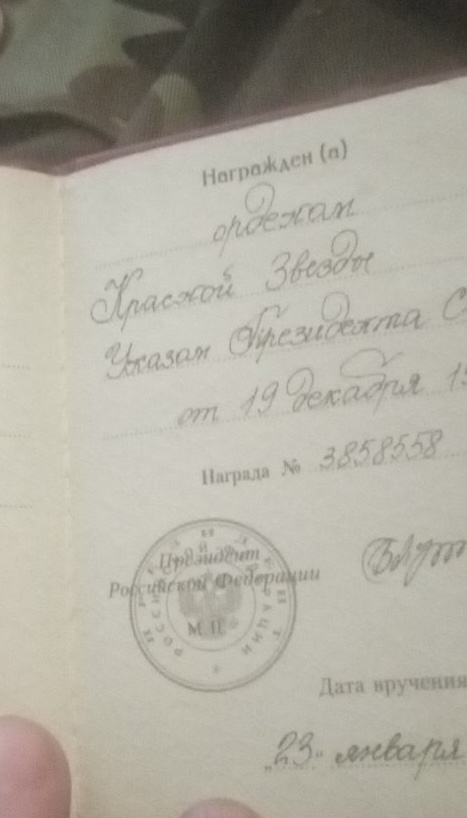 Награжден (а)
орденом
Красной Звезды
Указом Президента С
от 19 декабря 19
Награда № 3858558
Президент
Российской Федерации
М.П.
Дата вручения
„23“ января